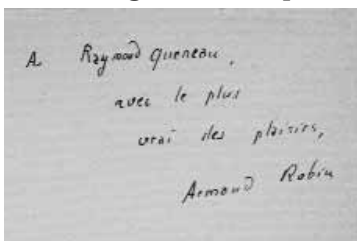 A Raymond Queneau,
avec le plus
vrai des plaisirs,
Armand Robin